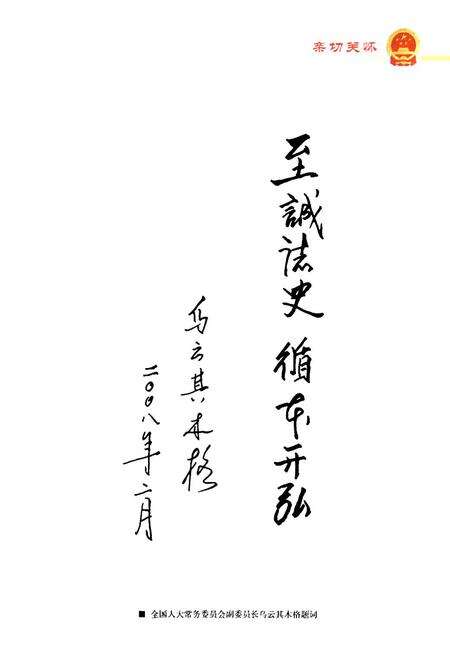 亲切关怀
至誠誌史 循本开弘
乌云其木格
二〇〇八年二月
■ 全国人大常务委员会副委员长乌云其木格题词